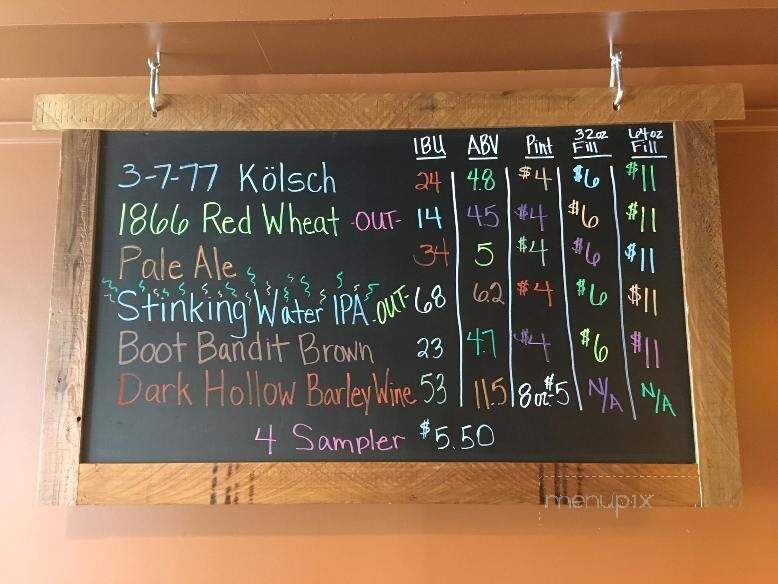 IBU ABV Pint 32oz Fill 64oz Fill
3-7-77 Kölsch 24 4.8 $4 $6 $11
1866 Red Wheat -OUT- 14 4.5 $4 $6 $11
Pale Ale 34 5 $4 $6 $11
Stinking Water IPA -OUT- 68 6.2 $4 $6 $11
Boot Bandit Brown 23 4.7 $4 $6 $11
Dark Hollow Barley Wine 53 11.5 8oz $5 N/A N/A
4 Sampler $5.50
menupix